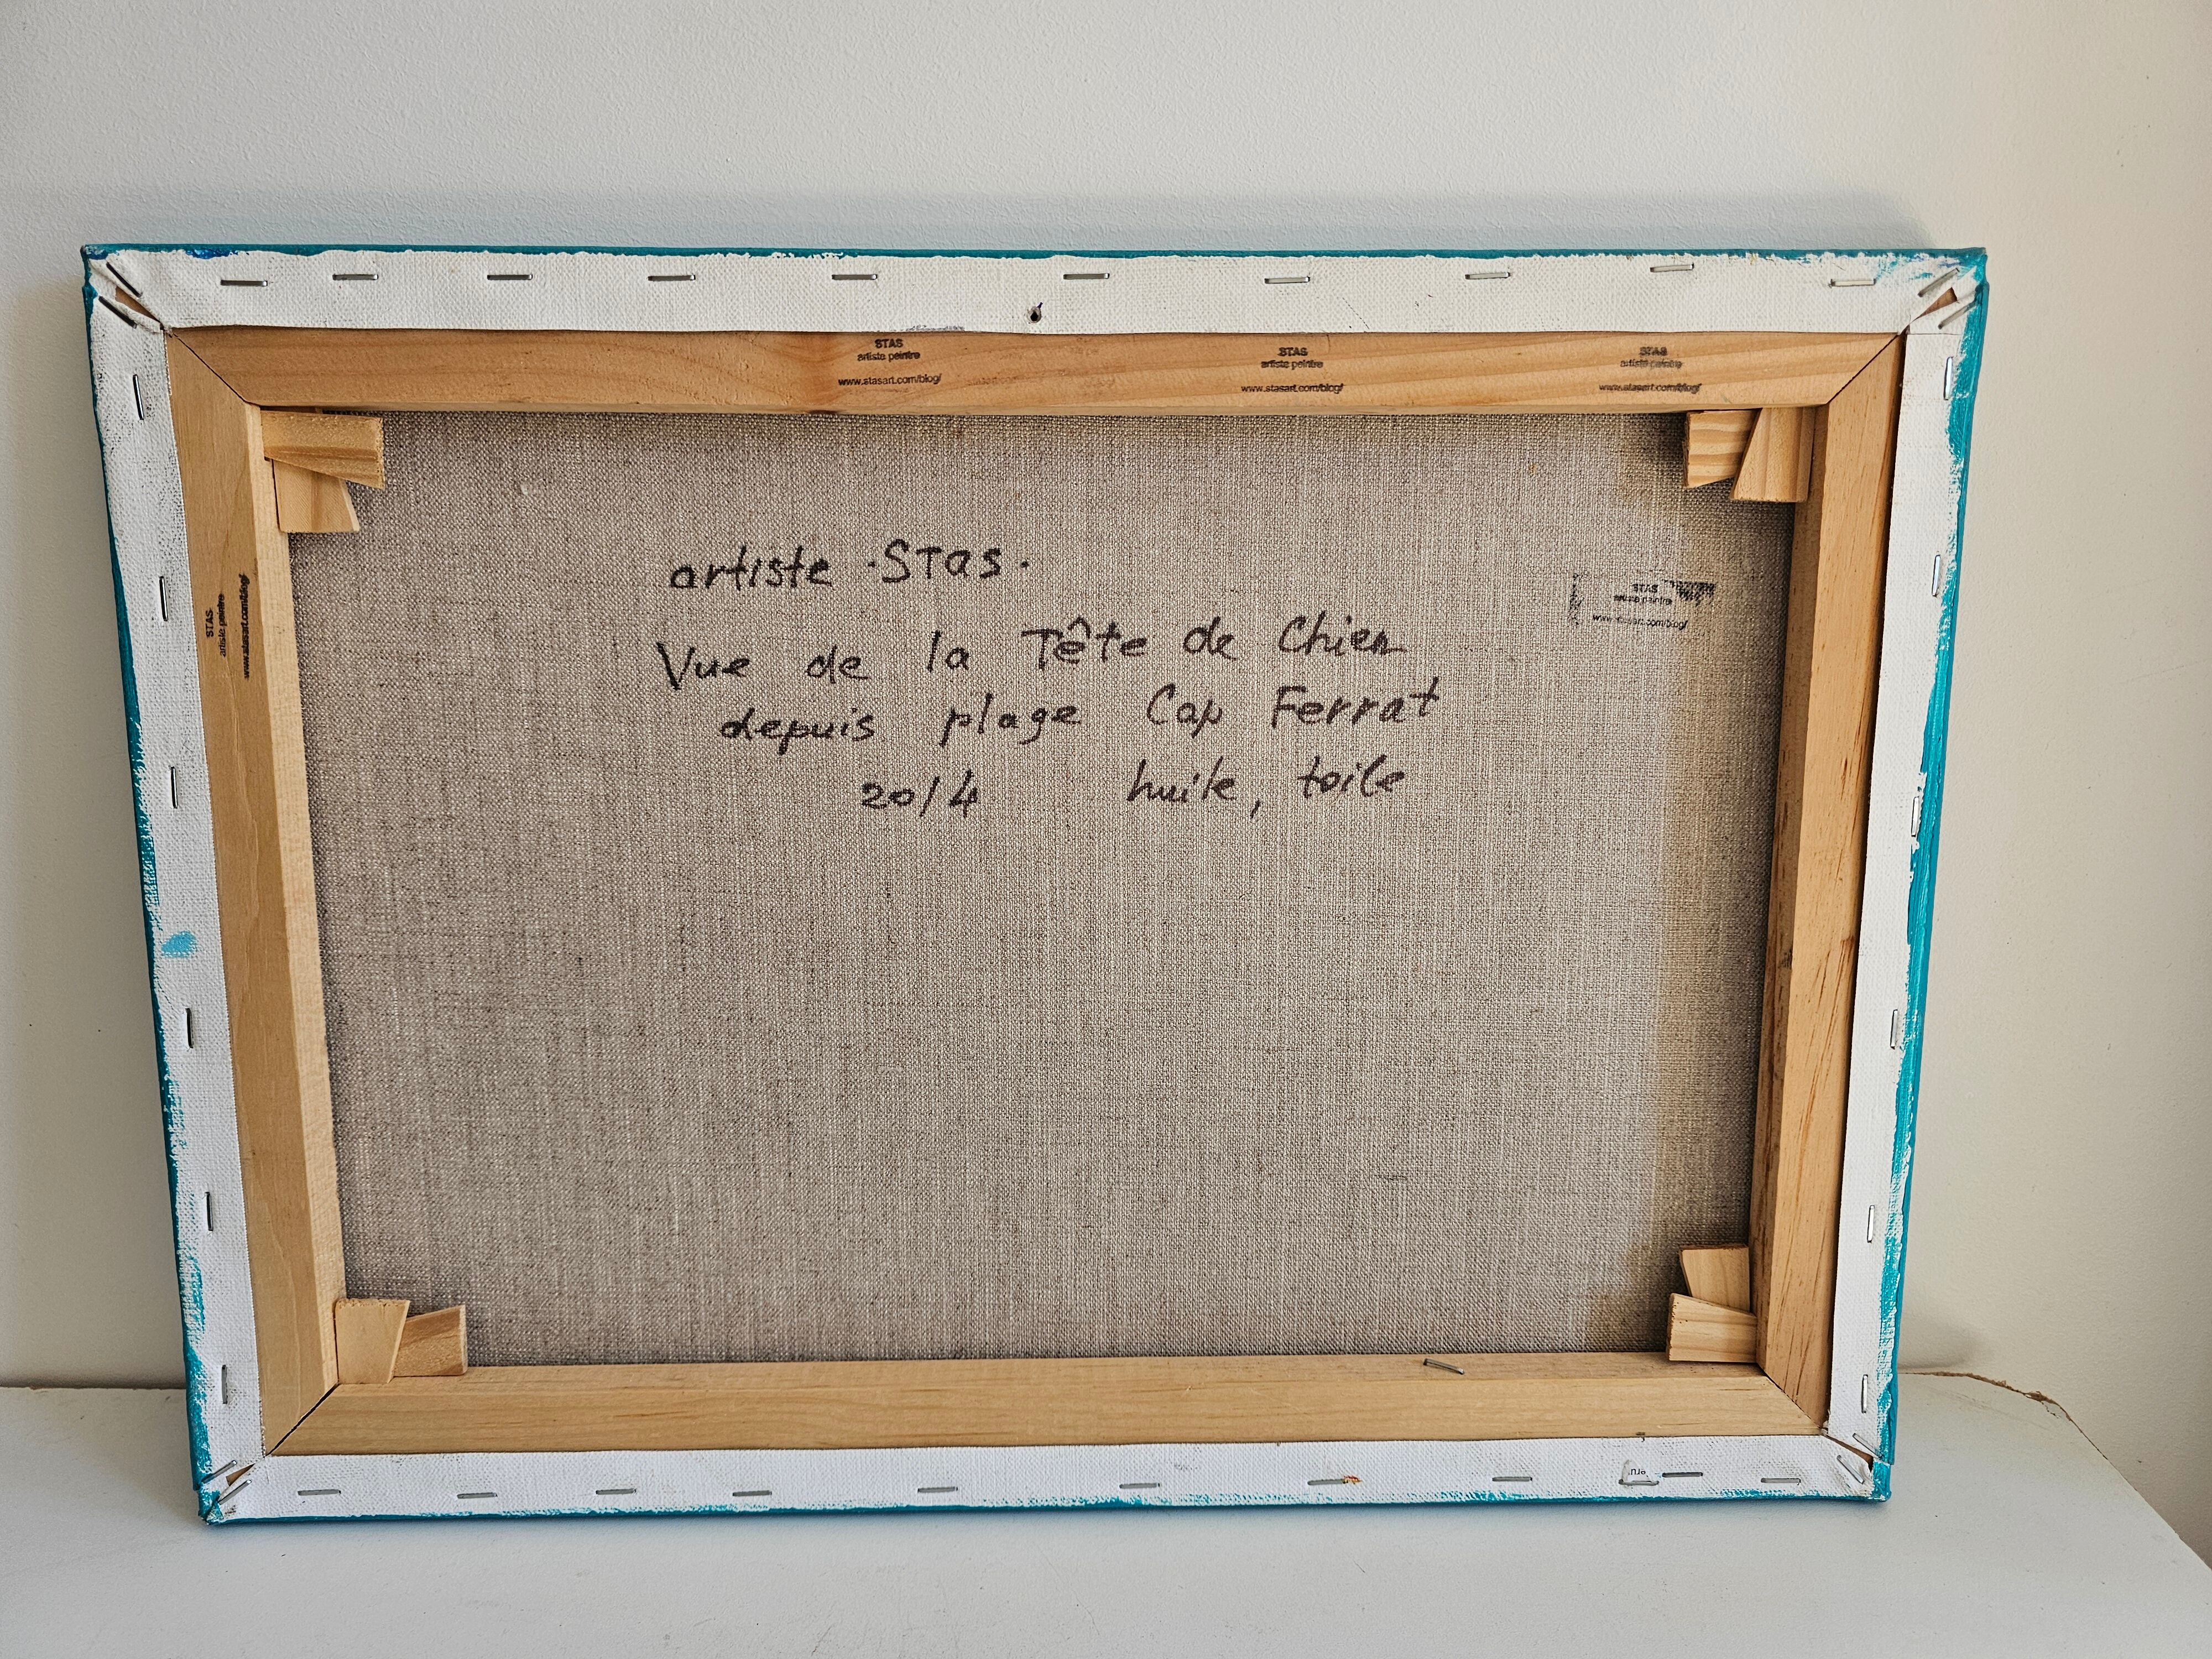 STAS
artiste peintre
www.stasart.com/blog/
STAS
artiste peintre
www.stasart.com/blog/
STAS
artiste peintre
www.stasart.com/blog/
artiste · STas ·
Vue de la Tête de Chien
depuis plage Cap Ferrat
2014 huile, toile
STAS
artiste peintre
www.stasart.com/blog/
STAS
artiste peintre
www.stasart.com/blog/